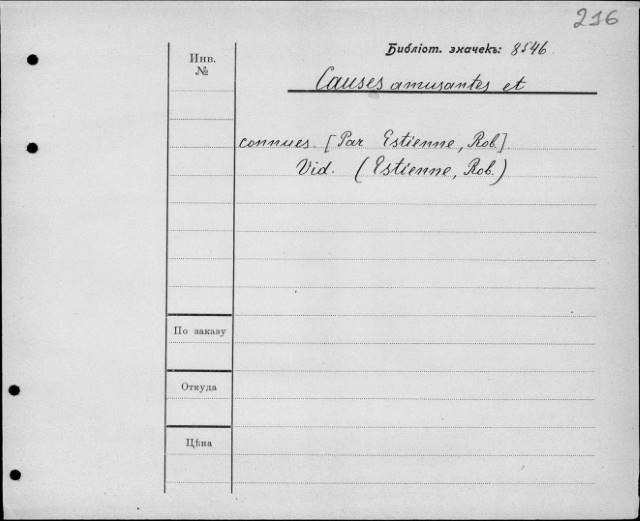 216
Библіот. значекъ: 8546
Инв. №
Causes amusantes et
connues. [Par Estienne, Rob.]
Vid. (Estienne, Rob.)
По заказу
Откуда
Цѣна